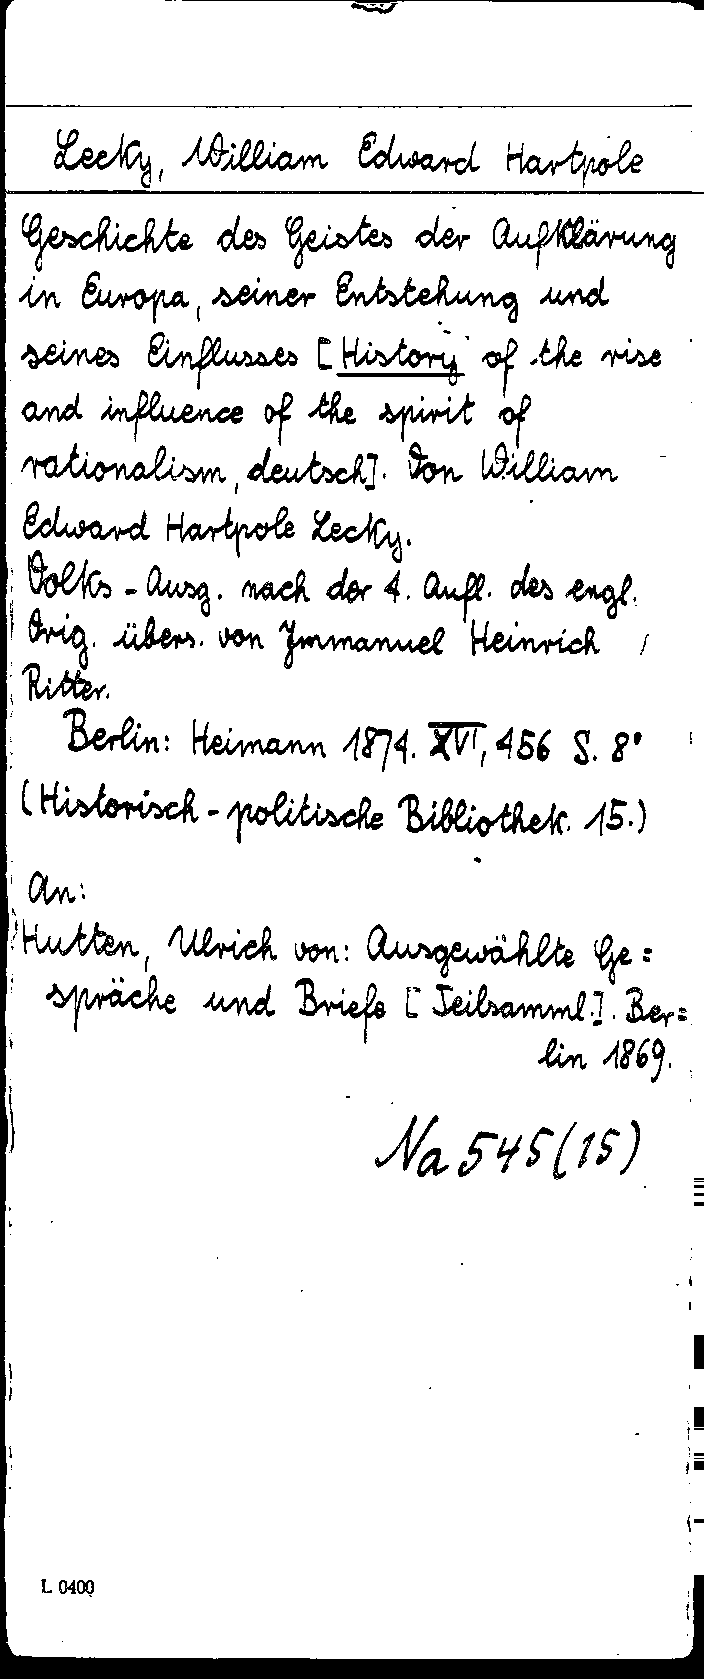 Lecky, William Edward Hartpole
Geschichte des Geistes der Aufklärung
in Europa, seiner Entstehung und
seines Einflusses [History of the rise
and influence of the spirit of
rationalism, deutsch]. Von William
Edward Hartpole Lecky.
Volks-Ausg. nach der 4. Aufl. des engl.
Orig. übers. von Immanuel Heinrich
Ritter.
Berlin: Heimann 1874. XVI, 456 S. 8°
(Historisch-politische Bibliothek. 15.)
An:
Hutten, Ulrich von: Ausgewählte Ge=
spräche und Briefe [Teilsamml.]. Ber=
lin 1869.
Na 545(15)
L 0400